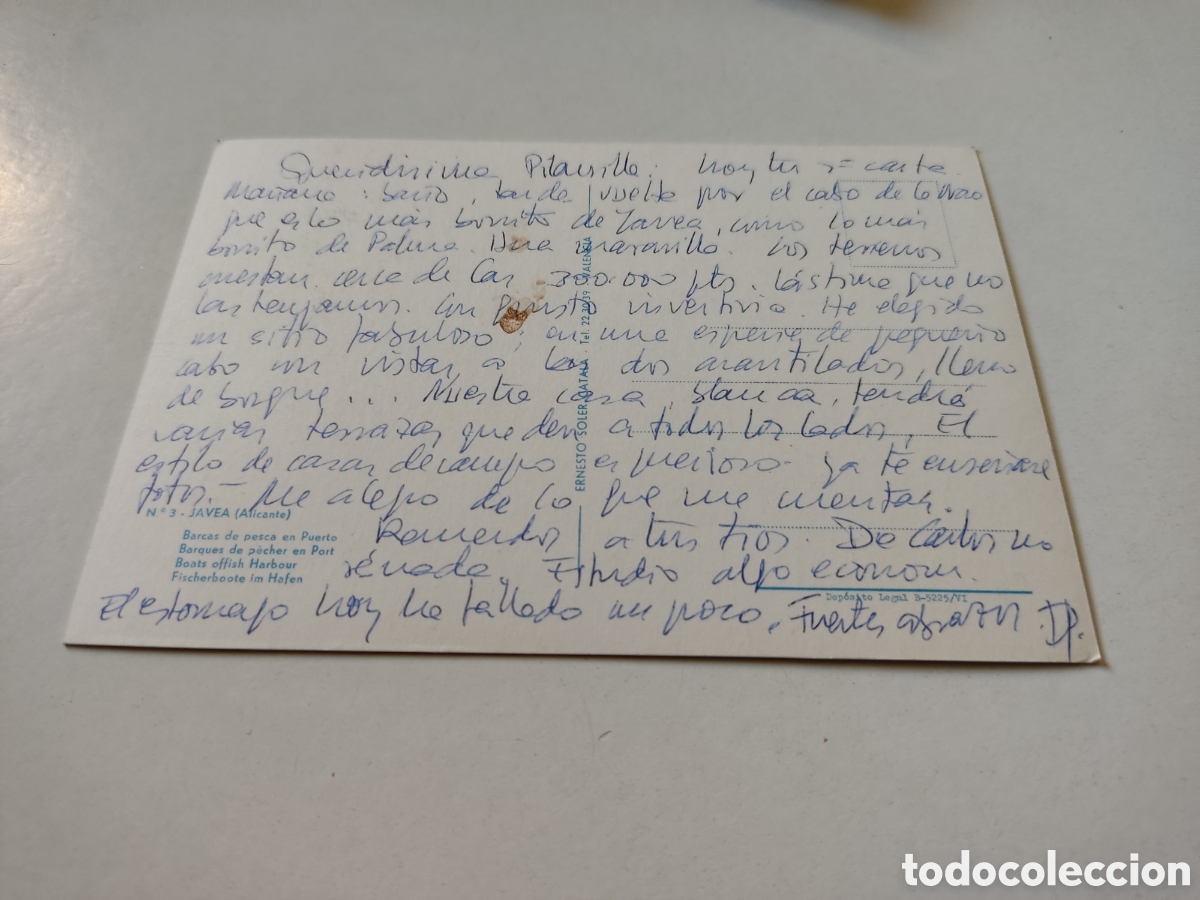 Queridísima Pilarsilla: hoy tu 2ª carta.
Mañana: baño, tarde vuelta por el cabo de la Nao
que es lo más bonito de Javea, como lo más
bonito de Palma. Una maravilla. Los terrenos
cuestan cerca de las 300.000 pts. Lástima que no
las tengamos. Con gusto invertiría. He elegido
un sitio fabuloso; en una especie de pequeño
cabo con vistas a los dos acantilados, lleno
de bosque... Nuestra casa, blanca, tendrá
varias terrazas que den a todos los lados. El
estilo de casas de campo es precioso. ya te enseñaré
fotos.- Me alegro de lo que me cuentas.
Recuerdos a tus tíos. De Carlos no
sé nada. Estudio algo econom.
El estomago hoy ha fallado un poco. Fuertes abrazos.
N.º 3 - JAVEA (Alicante)
Barcas de pesca en Puerto
Barques de pècher en Port
Boats offish Harbour
Fischerboote im Hafen
ERNESTO SOLER CATALÁ · Tel. 22 30 39 · VALENCIA
Depósito Legal B-5225/VI
todocoleccion